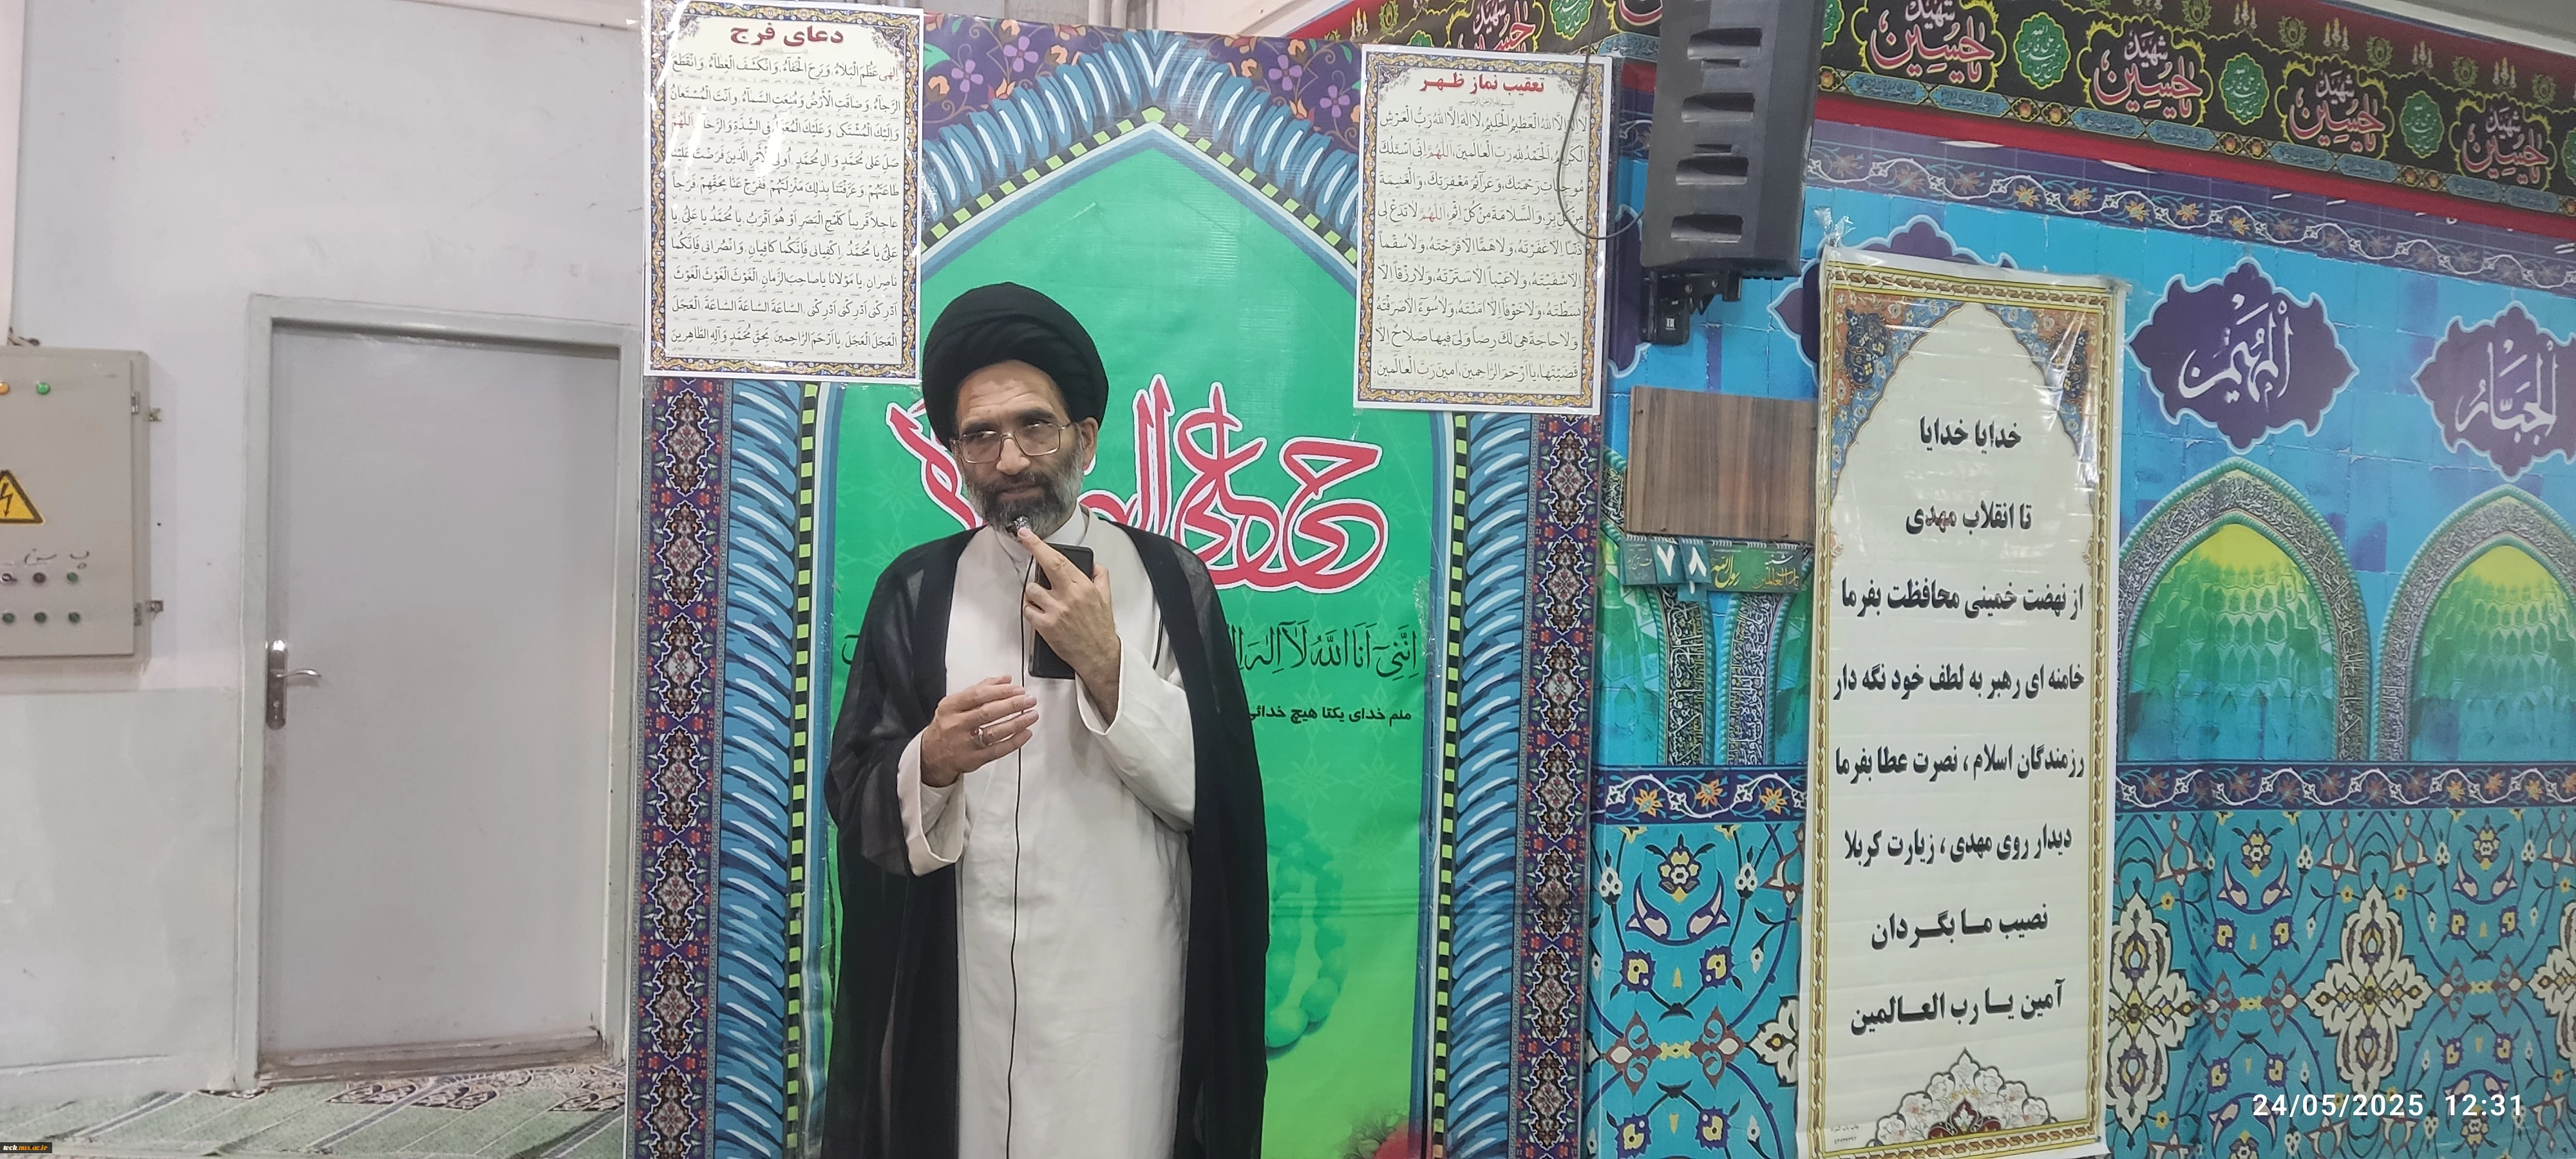 دعای فرج
اِلهی عَظُمَ الْبَلاءُ، وَبَرِحَ الْخَفاءُ، وَانْکَشَفَ الْغِطاءُ، وَانْقَطَعَ
الرَّجاءُ، وَضاقَتِ الْاَرْضُ، وَمُنِعَتِ السَّماءُ، واَنْتَ الْمُسْتَعانُ
وَاِلَیْکَ الْمُشْتَکی، وَعَلَیْکَ الْمُعَوَّلُ فِی الشِّدَّةِ وَالرَّخاءِ، اَللّهُمَّ
صَلِّ عَلی مُحَمَّدٍ وَ الِ مُحَمَّدٍ، اُولِی الْاَمْرِ الَّذینَ فَرَضْتَ عَلَیْنا
طاعَتَهُمْ، وَعَرَّفْتَنا بِذلِکَ مَنْزِلَتَهُمْ، فَفَرِّجْ عَنّا بِحَقِّهِمْ، فَرَجاً
عاجِلاً قَریباً کَلَمْحِ الْبَصَرِ اَوْ هُوَ اَقْرَبُ، یا مُحَمَّدُ یا عَلِیُّ، یا
عَلِیُّ یا مُحَمَّدُ، اِکْفِیانی فَاِنَّکُما کافِیانِ، وَانْصُرانی فَاِنَّکُما
ناصِرانِ، یا مَوْلانا یا صاحِبَ الزَّمانِ، الْغَوْثَ الْغَوْثَ الْغَوْثَ
اَدْرِکْنی اَدْرِکْنی اَدْرِکْنی، السّاعَةَ السّاعَةَ السّاعَةَ، الْعَجَلَ
الْعَجَلَ الْعَجَلَ، یا اَرْحَمَ الرّاحِمینَ، بِحَقِّ مُحَمَّدٍ وَآلِهِ الطّاهِرینَ
تعقیب نماز ظهر
لا اِلهَ اِلاَّ اللهُ الْعَظیمُ الْحَلیمُ، لا اِلهَ اِلاَّ اللهُ رَبُّ الْعَرْشِ
الْکَریمُ، اَلْحَمْدُ لِلّهِ رَبِّ الْعالَمینَ، اَللّهُمَّ اِنّی اَسْئَلُکَ
مُوجِباتِ رَحْمَتِکَ، وَعَزآئِمَ مَغْفِرَتِکَ، وَالْغَنیمَةَ
مِنْ کُلِّ بِرٍّ، وَالسَّلامَةَ مِنْ کُلِّ اِثْمٍ، اَللّهُمَّ لا تَدَعْ لی
ذَنْباً اِلاّ غَفَرْتَهُ، وَلا هَمّاً اِلاّ فَرَّجْتَهُ، وَلا سُقْماً
اِلاّ شَفَیْتَهُ، وَلا عَیْباً اِلاّ سَتَرْتَهُ، وَلا رِزْقاً اِلاّ
بَسَطْتَهُ، وَلا خَوْفاً اِلاّ امَنْتَهُ، وَلا سُوءً اِلاّ صَرَفْتَهُ
وَلا حاجَةً هِیَ لَکَ رِضاً وَلِیَ فیها صَلاحٌ اِلاّ
قَضَیْتَها، یا اَرْحَمَ الرّاحِمینَ، امینَ رَبَّ الْعالَمینَ.
شهید
یا حسین
شهید
یا حسین
شهید
یا حسین
شهید
یا حسین
الْمُهَیْمِنُ
الْجَبّارُ
حی علی
اِنَّنِی اَنَا اللّهُ لَآ اِلٰهَ
منم خدای یکتا هیچ خدائی
۷۸
رسول الله
خدایا خدایا
تا انقلاب مهدی
از نهضت خمینی محافظت بفرما
خامنه ای رهبر به لطف خود نگه دار
رزمندگان اسلام ، نصرت عطا بفرما
دیدار روی مهدی ، زیارت کربلا
نصیب ما بگردان
آمین یا رب العالمین
24/05/2025 12:31